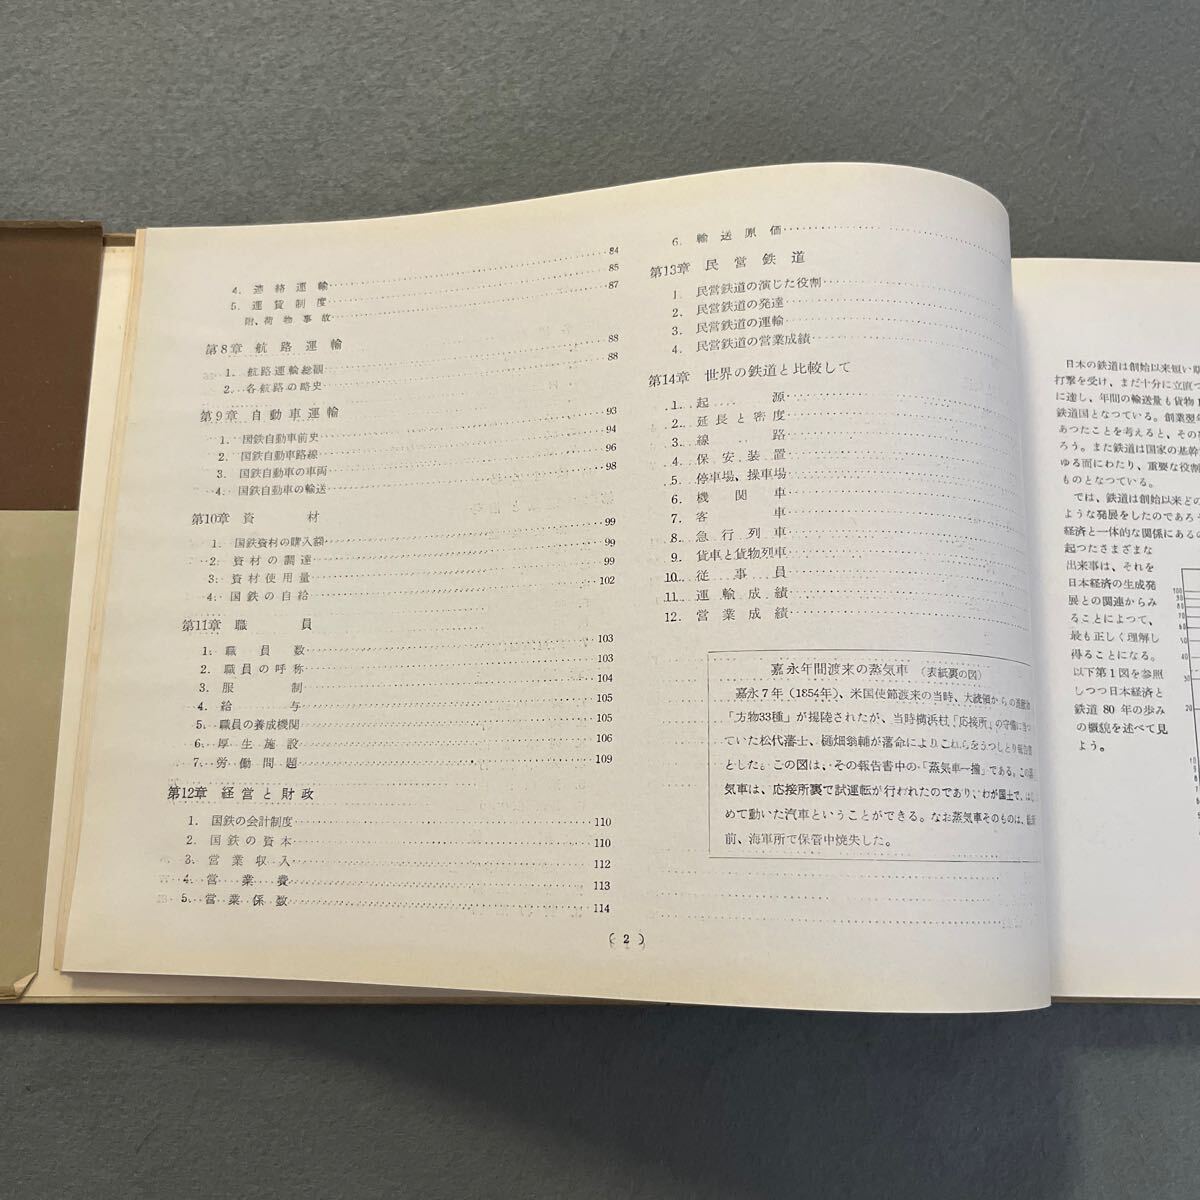 4. 連絡運輸 84
5. 運賃制度 85
附、荷物事故 87
第8章 航路運輸
1. 航路運輸総観 88
2. 各航路の略史 88
第9章 自動車運輸
1. 国鉄自動車前史 93
2. 国鉄自動車路線 94
3. 国鉄自動車の車両 96
4. 国鉄自動車の輸送 98
第10章 資材
1. 国鉄資材の購入額 99
2. 資材の調達 99
3. 資材使用量 99
4. 国鉄の自給 102
第11章 職員
1. 職員数 103
2. 職員の呼称 103
3. 服制 104
4. 給与 105
5. 職員の養成機関 105
6. 厚生施設 106
7. 労働問題 109
第12章 経営と財政
1. 国鉄の会計制度 110
2. 国鉄の資本 110
3. 営業収入 112
4. 営業費 113
5. 営業係数 114
6. 輸送原価
第13章 民営鉄道
1. 民営鉄道の演じた役割
2. 民営鉄道の発達
3. 民営鉄道の運輸
4. 民営鉄道の営業成績
第14章 世界の鉄道と比較して
1. 起源
2. 延長と密度
3. 線路
4. 保安装置
5. 停車場、操車場
6. 機関車
7. 客車
8. 急行列車
9. 貨車と貨物列車
10. 従事員
11. 運輸成績
12. 営業成績
嘉永年間渡来の蒸気車 (表紙裏の図)
嘉永7年(1854年)、米国使節渡来の当時、大統領からの進献物
「方物33種」が揚陸されたが、当時横浜村「応接所」の守備に当つ
ていた松代藩士、樋畑翁輔が藩命によりこれらをうつしとり報告書
とした。この図は、その報告書中の「蒸気車一揃」である。この蒸
気車は、応接所裏で試運転が行われたのであり、わが国土で、はじ
めて動いた汽車ということができる。なお蒸気車そのものは、
前、海軍所で保管中焼失した。
( 2 )
日本の鉄道は創始以来短い期
打撃を受け、まだ十分に立直つ
に達し、年間の輸送量も貨物1
鉄道国となつている。創業翌年
あつたことを考えると、その
ろう。また鉄道は国家の基幹
ゆる面にわたり、重要な役割
ものとなつている。
では、鉄道は創始以来どの
ような発展をしたのであろう
経済と一体的な関係にあるの
起つたさまざまな
出来事は、それを
日本経済の生成発
展との関連からみ
ることによつて、
最も正しく理解し
得ることになる。
以下第1図を参照
しつつ日本経済と
鉄道80年の歩み
の概貌を述べて見
よう。
100
90
80
70
60
50
40
30
20
10
9
8
7
6